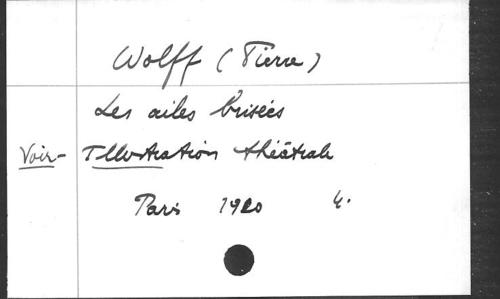 Wolff (Pierre)
Les ailes brisées
Voir - Illustration théâtrale
Paris 1920 4.